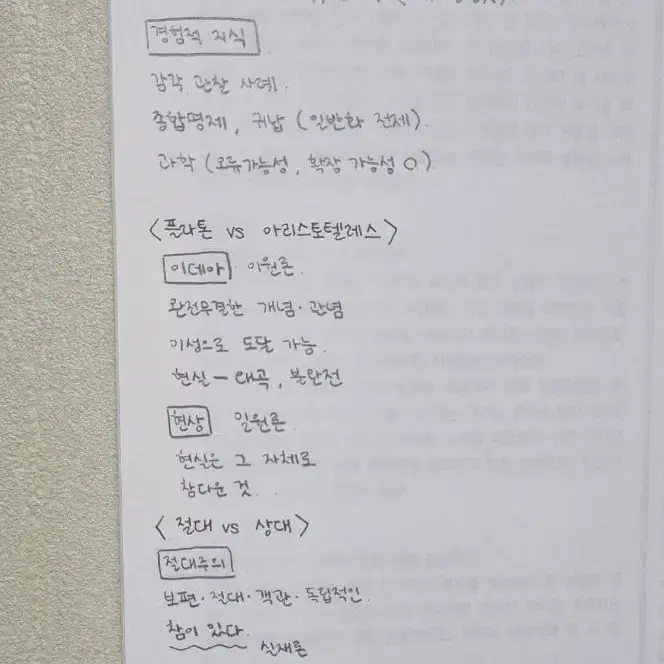 경험적 지식
감각 관찰 사례.
종합명제, 귀납 (일반화 전제).
과학 (오류가능성, 확장 가능성 O).
<플라톤 vs 아리스토텔레스>
이데아 이원론.
완전무결한 개념·관념
이성으로 도달 가능.
현실 - 왜곡, 불완전
현상 일원론.
현실은 그 자체로
참다운 것.
<절대 vs 상대>
절대주의
보편·절대·객관·독립적인
참이 있다.
실재론